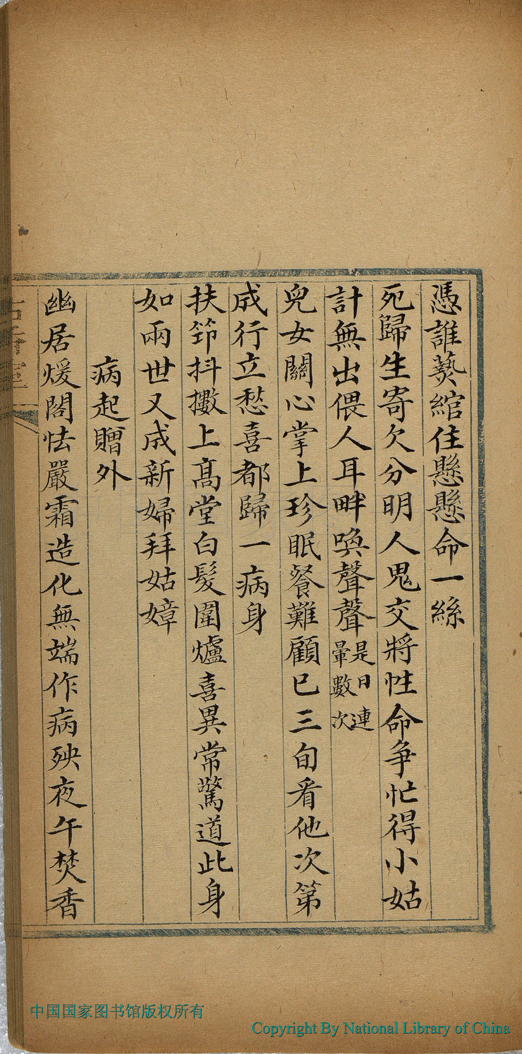 憑誰䕫綰住懸懸命一絲
死歸生寄欠分明人鬼交將性命爭忙得小姑
計無出偎人耳畔喚聲聲是日連暈數次
兒女關心掌上珍眠餐難顧已三旬看他次第
成行立愁喜都歸一病身
扶筇抖擻上髙堂白髮圍爐喜異常驚道此身
如兩世又成新婦拜姑嫜
病起贈外
幽居煖閣怯嚴霜造化無端作病殃夜午焚香
中国国家图书馆版权所有
Copyright By National Library of China